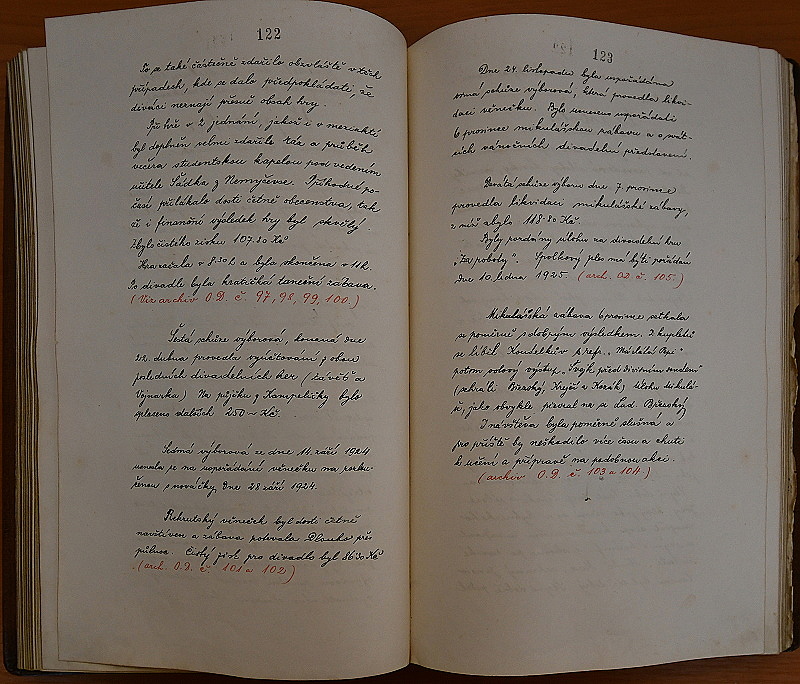 122
To se také částečně zdařilo obzvláště v těch
případech, kde se dalo předpokládati, že
diváci neznají přesně obsah hry.
Při hře v 2 jednání, jakož i v meziaktí
byl doplněn velmi zdařile ráz a průběh
večera studentskou kapelou pod vedením
učitele Sádka z Němyčevse. Příhodné po-
časí přilákalo dosti četné obecenstvo, tak
že i finanční výsledek hry byl skvělý.
Zbylo čistého zisku 107.80 Kč
Hra začala v 8.30 h a byla skončena v 11 h.
Po divadle byla kratičká taneční zábava.
(Viz archiv O.D. č. 97, 98, 99, 100.)
Šestá schůze výborová, konaná dne
22. dubna provedla vyúčtování z obou
posledních divadelních her (Závěť a
Vojnarka) Na půjčku z Kampeličky bylo
splaceno dalších 250 - Kč.
Sedmá výborová ze dne 14. září 1924
usnesla se na uspořádání věnečku na rozlou-
čenou s nováčky, dne 28 září 1924.
Rekrutský věneček byl dosti četně
navštíven a zábava potrvala dlouho přes
půlnoc. Čistý zisk pro divadlo byl 86.30 Kč
(arch. O.D. č. 101 a 102)
123
Dne 24. listopadu byla uspořádána
osmá schůze výborová, která provedla likvi-
daci věnečku. Bylo usneseno uspořádati
6 prosince mikulášskou zábavu a o svát-
cích vánočních divadelní představení.
Devátá schůze výboru dne 7. prosince
provedla likvidaci mikulášské zábavy,
z níž zbylo 118.80 Kč.
Byly rozdány úlohy na divadelní hru
"Za svobody". Spolkový ples má býti pořádán
dne 10. ledna 1925. (arch. O.D. č. 105.)
Mikulášská zábava 6 prosince setkala
se poměrně s dobrým výsledkem. Z kupletů
se líbil Koudelkův
potom solový výstup "Švejk před divisním soudem"
(sehráli Bieský, Krejčí a Kozák) Úlohu Mikulá-
še, jako obvykle převzal na se Lad.
I návštěva byla poměrně slušná a
pro příště by neškodilo více času a chuti
k učení a přípravě na podobnou akci.
(archiv O.D. č. 103 a 104.)